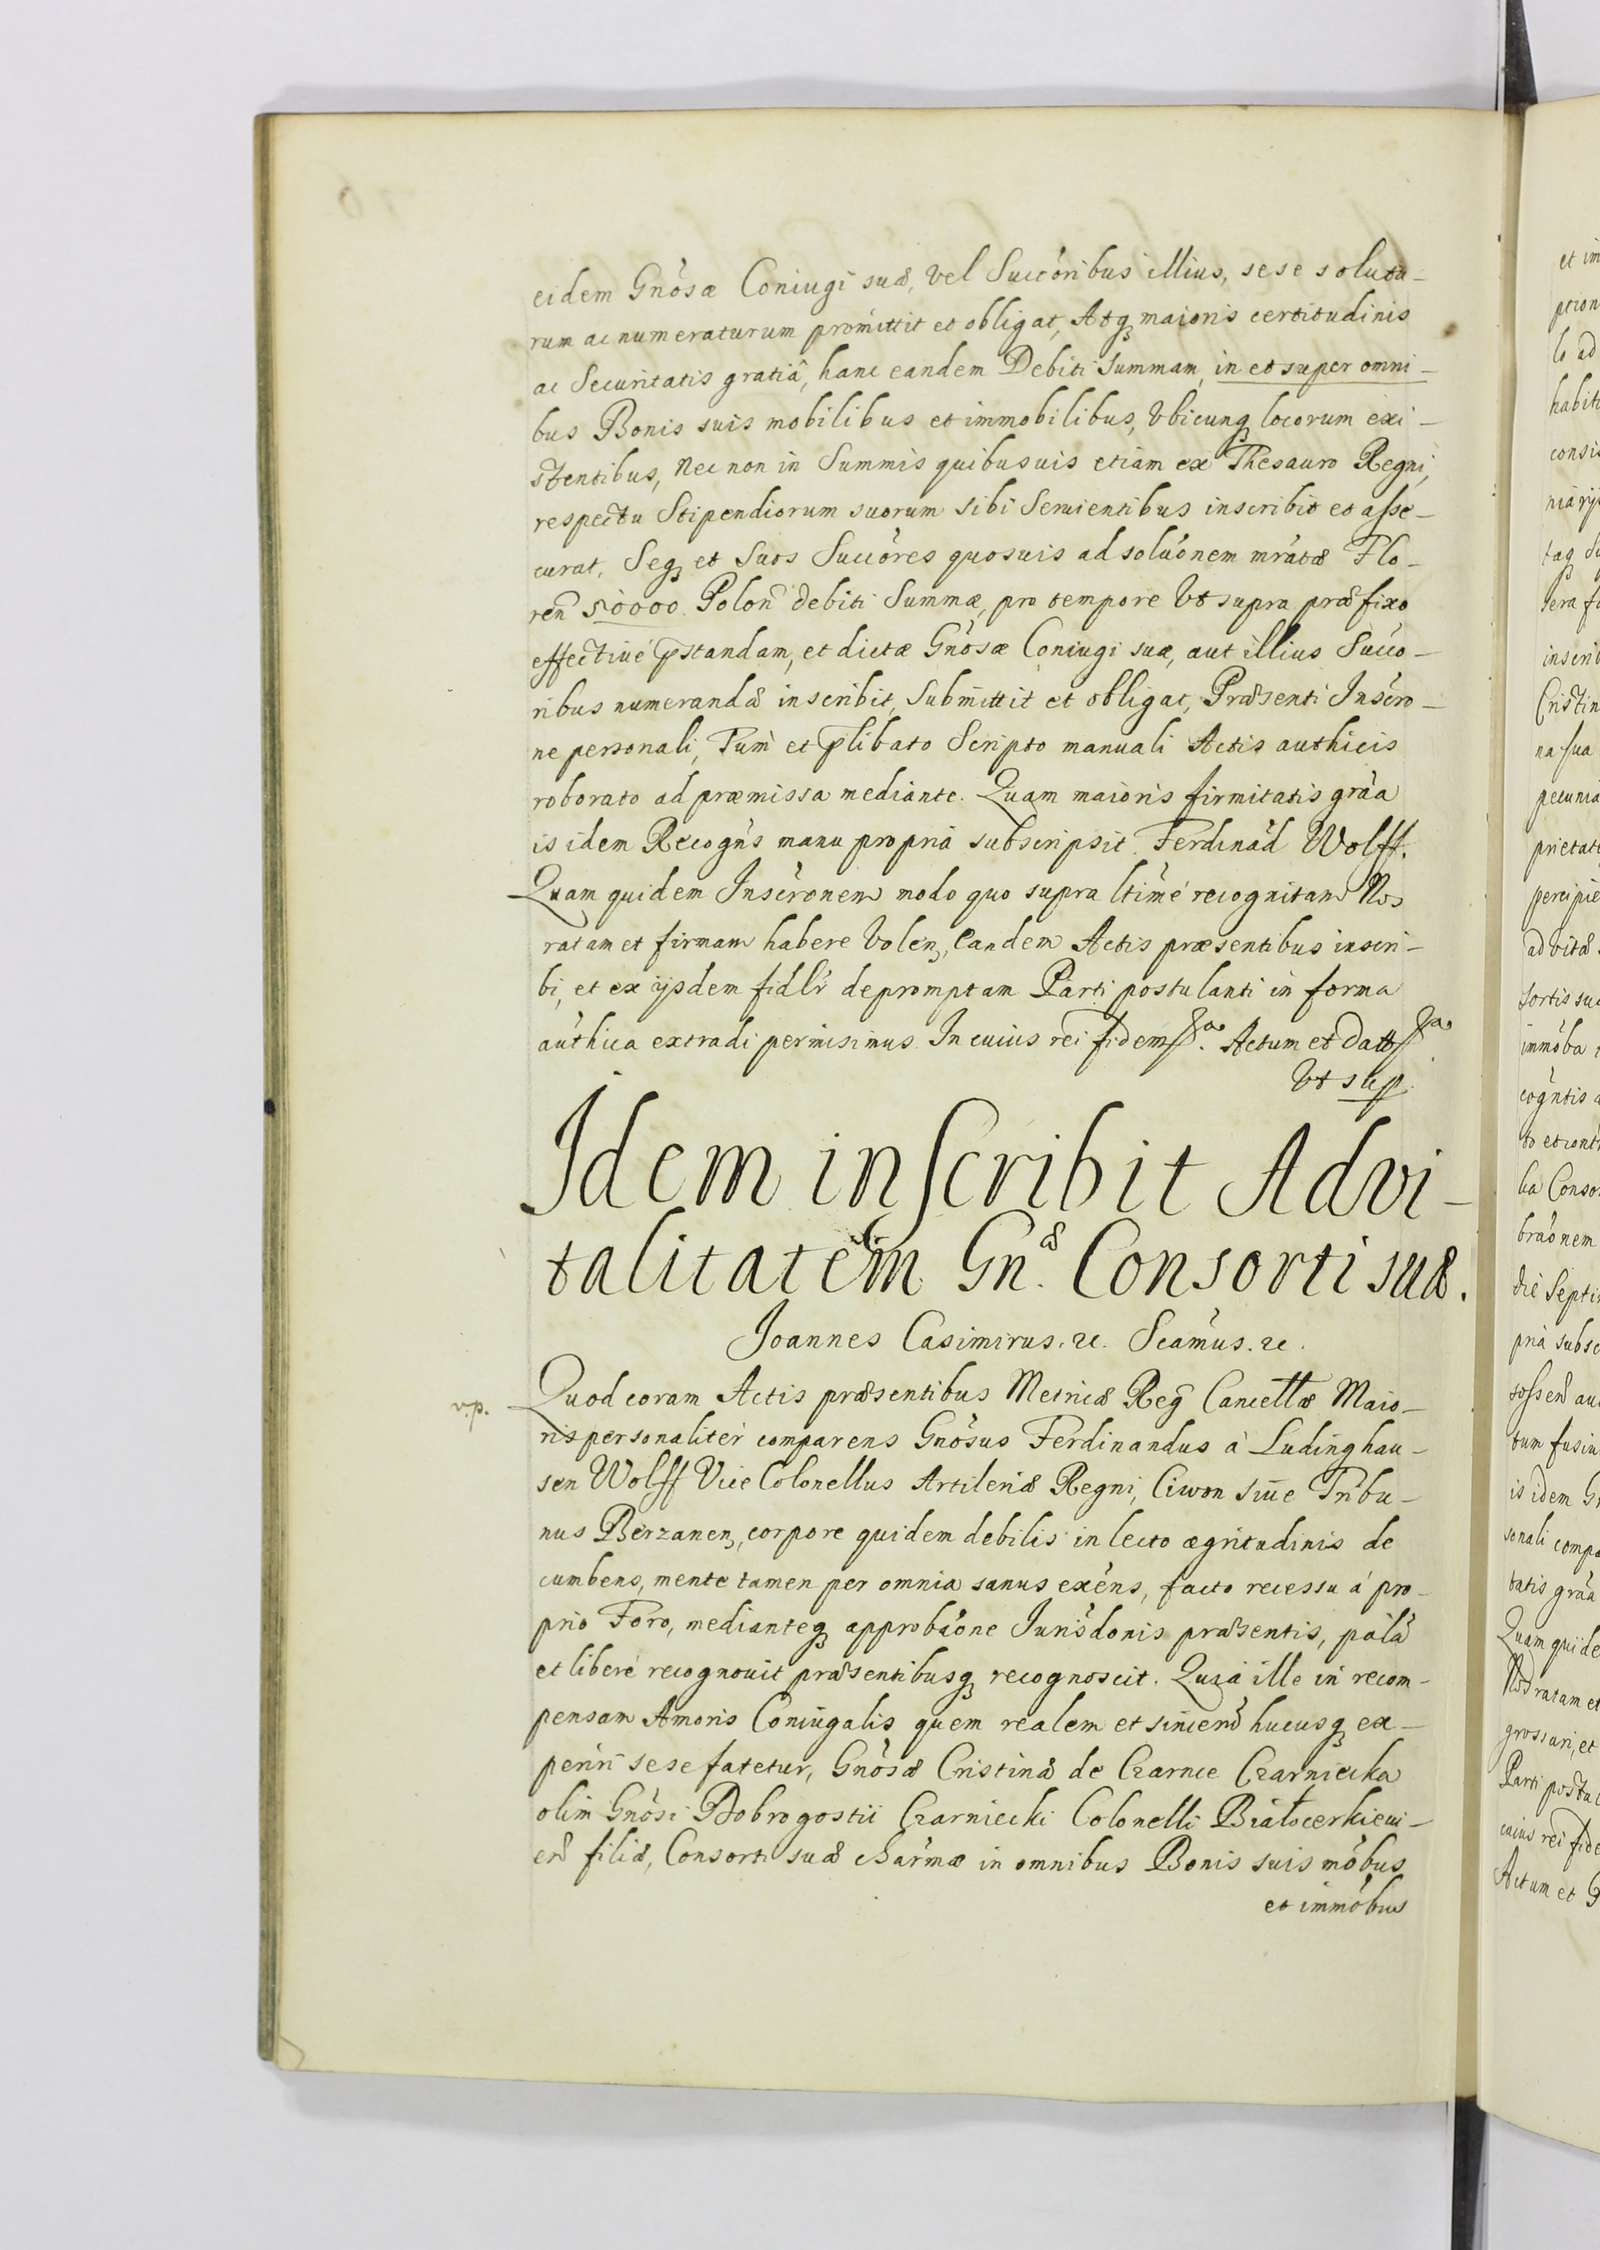 eidem Gnôsæ Coniugi suæ, vel Succôribus illius, sese solutu-
rum ac numeraturum promittit et obligat, Atq maioris certitudinis
ac Securitatis gratiâ, hanc eandem Debiti Summam, in et super omni-
bus Bonis suis mobilibus et immobilibus, Vbicunq locorum exi-
stentibus, Nec non in Summis quibusuis etiam ex Thesauro Regni,
respectu Stipendiorum suorum sibi Seruientibus inscribit et asse-
curat, Seq et Suos Succôres quosuis ad soluônem mrâtæ Flo-
ren 50000. Polon debiti Summæ, pro tempore Vt supra præfixo
effectiué pstandam, et dictæ Gnôsæ Coniugi suæ, aut illius Succo-
ribus numerandâ inscribit, Submittit et obligat, Præsenti Inscro-
ne personali, Tum et plibato Scripto manuali Actis authicis
roborato ad præmissa mediante. Quam maioris firmitatis grâa
is idem Recogns manu propriâ subscripsit Ferdinâd Wolff.
Quam quidem Inscrônem modo quo supra ltimé recognitam Nos
ratam et firmam habere Volen, Eandem Actis præsentibus inscri-
bi, et ex ijsdem fidlr depromptam Parti postulanti in forma
authica extradi permisimus. In cuius rei fidem &a. Actum et Datt &a
Vt sup
Idem inscribit Advi-
talitatem Gn.æ Consorti suæ.
Joannes Casimirus. &c. Seâmus. &c.
v.p. Quod coram Actis præsentibus Metricæ Reg Cancellæ Maio-
ris personalitèr comparens Gnôsus Ferdinandus à Ludinghau-
sen Wolff Vice Colonellus Artileriæ Regni, Ciwon siue Tribu-
nus Berzanen, corpore quidem debilis in lecto ægritudinis de
cumbens, mente tamen per omnia sanus exêns, facto recessu à pro-
prio Foro, medianteq approbâone Jurisdonis præsentis, palâ
et liberè recognouit præsentibusq recognoscit. Quia ille in recom-
pensam Amoris Coniugalis quem realem et sincerû hucusq ex-
periri sese fatetur, Gnôsæ Cristinæ de Czarnce Czarniecka
olim Gnôsi Dobrogostii Czarniecki Colonelli Białocerkieui-
en filiæ, Consorti suæ charmæ in omnibus Bonis suis môbus
et immôbus